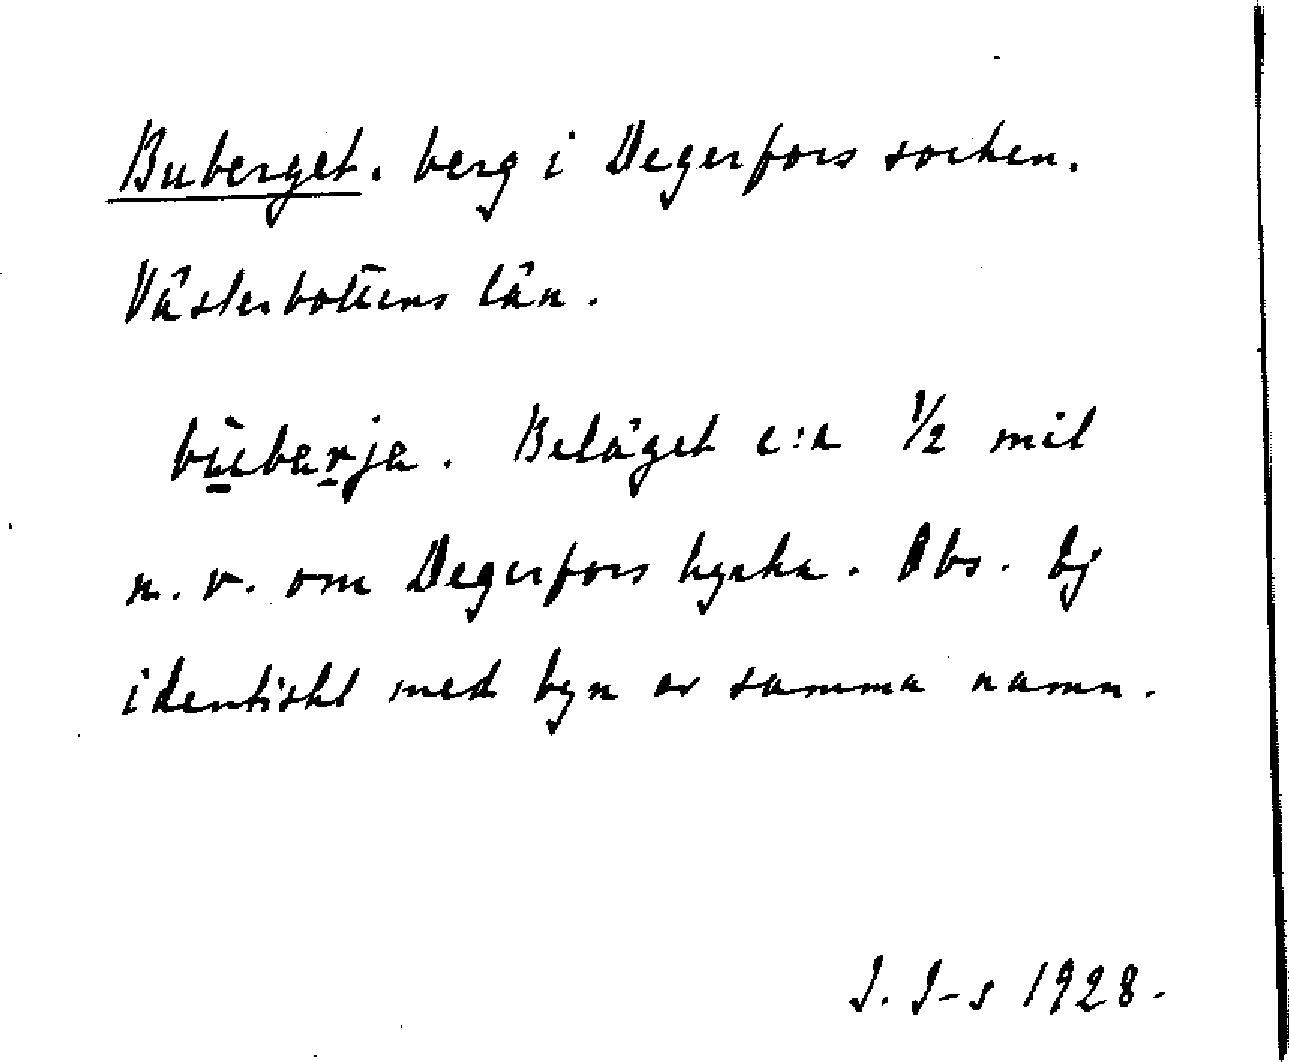 Buberget. berg i Degerfors socken.
Västerbottens län.
bùbarja. Beläget c:a 1/2 mil
n.v. om Degerfors kyrka. Obs. Ej
identiskt med byn av samma namn.
J. J-s 1928.